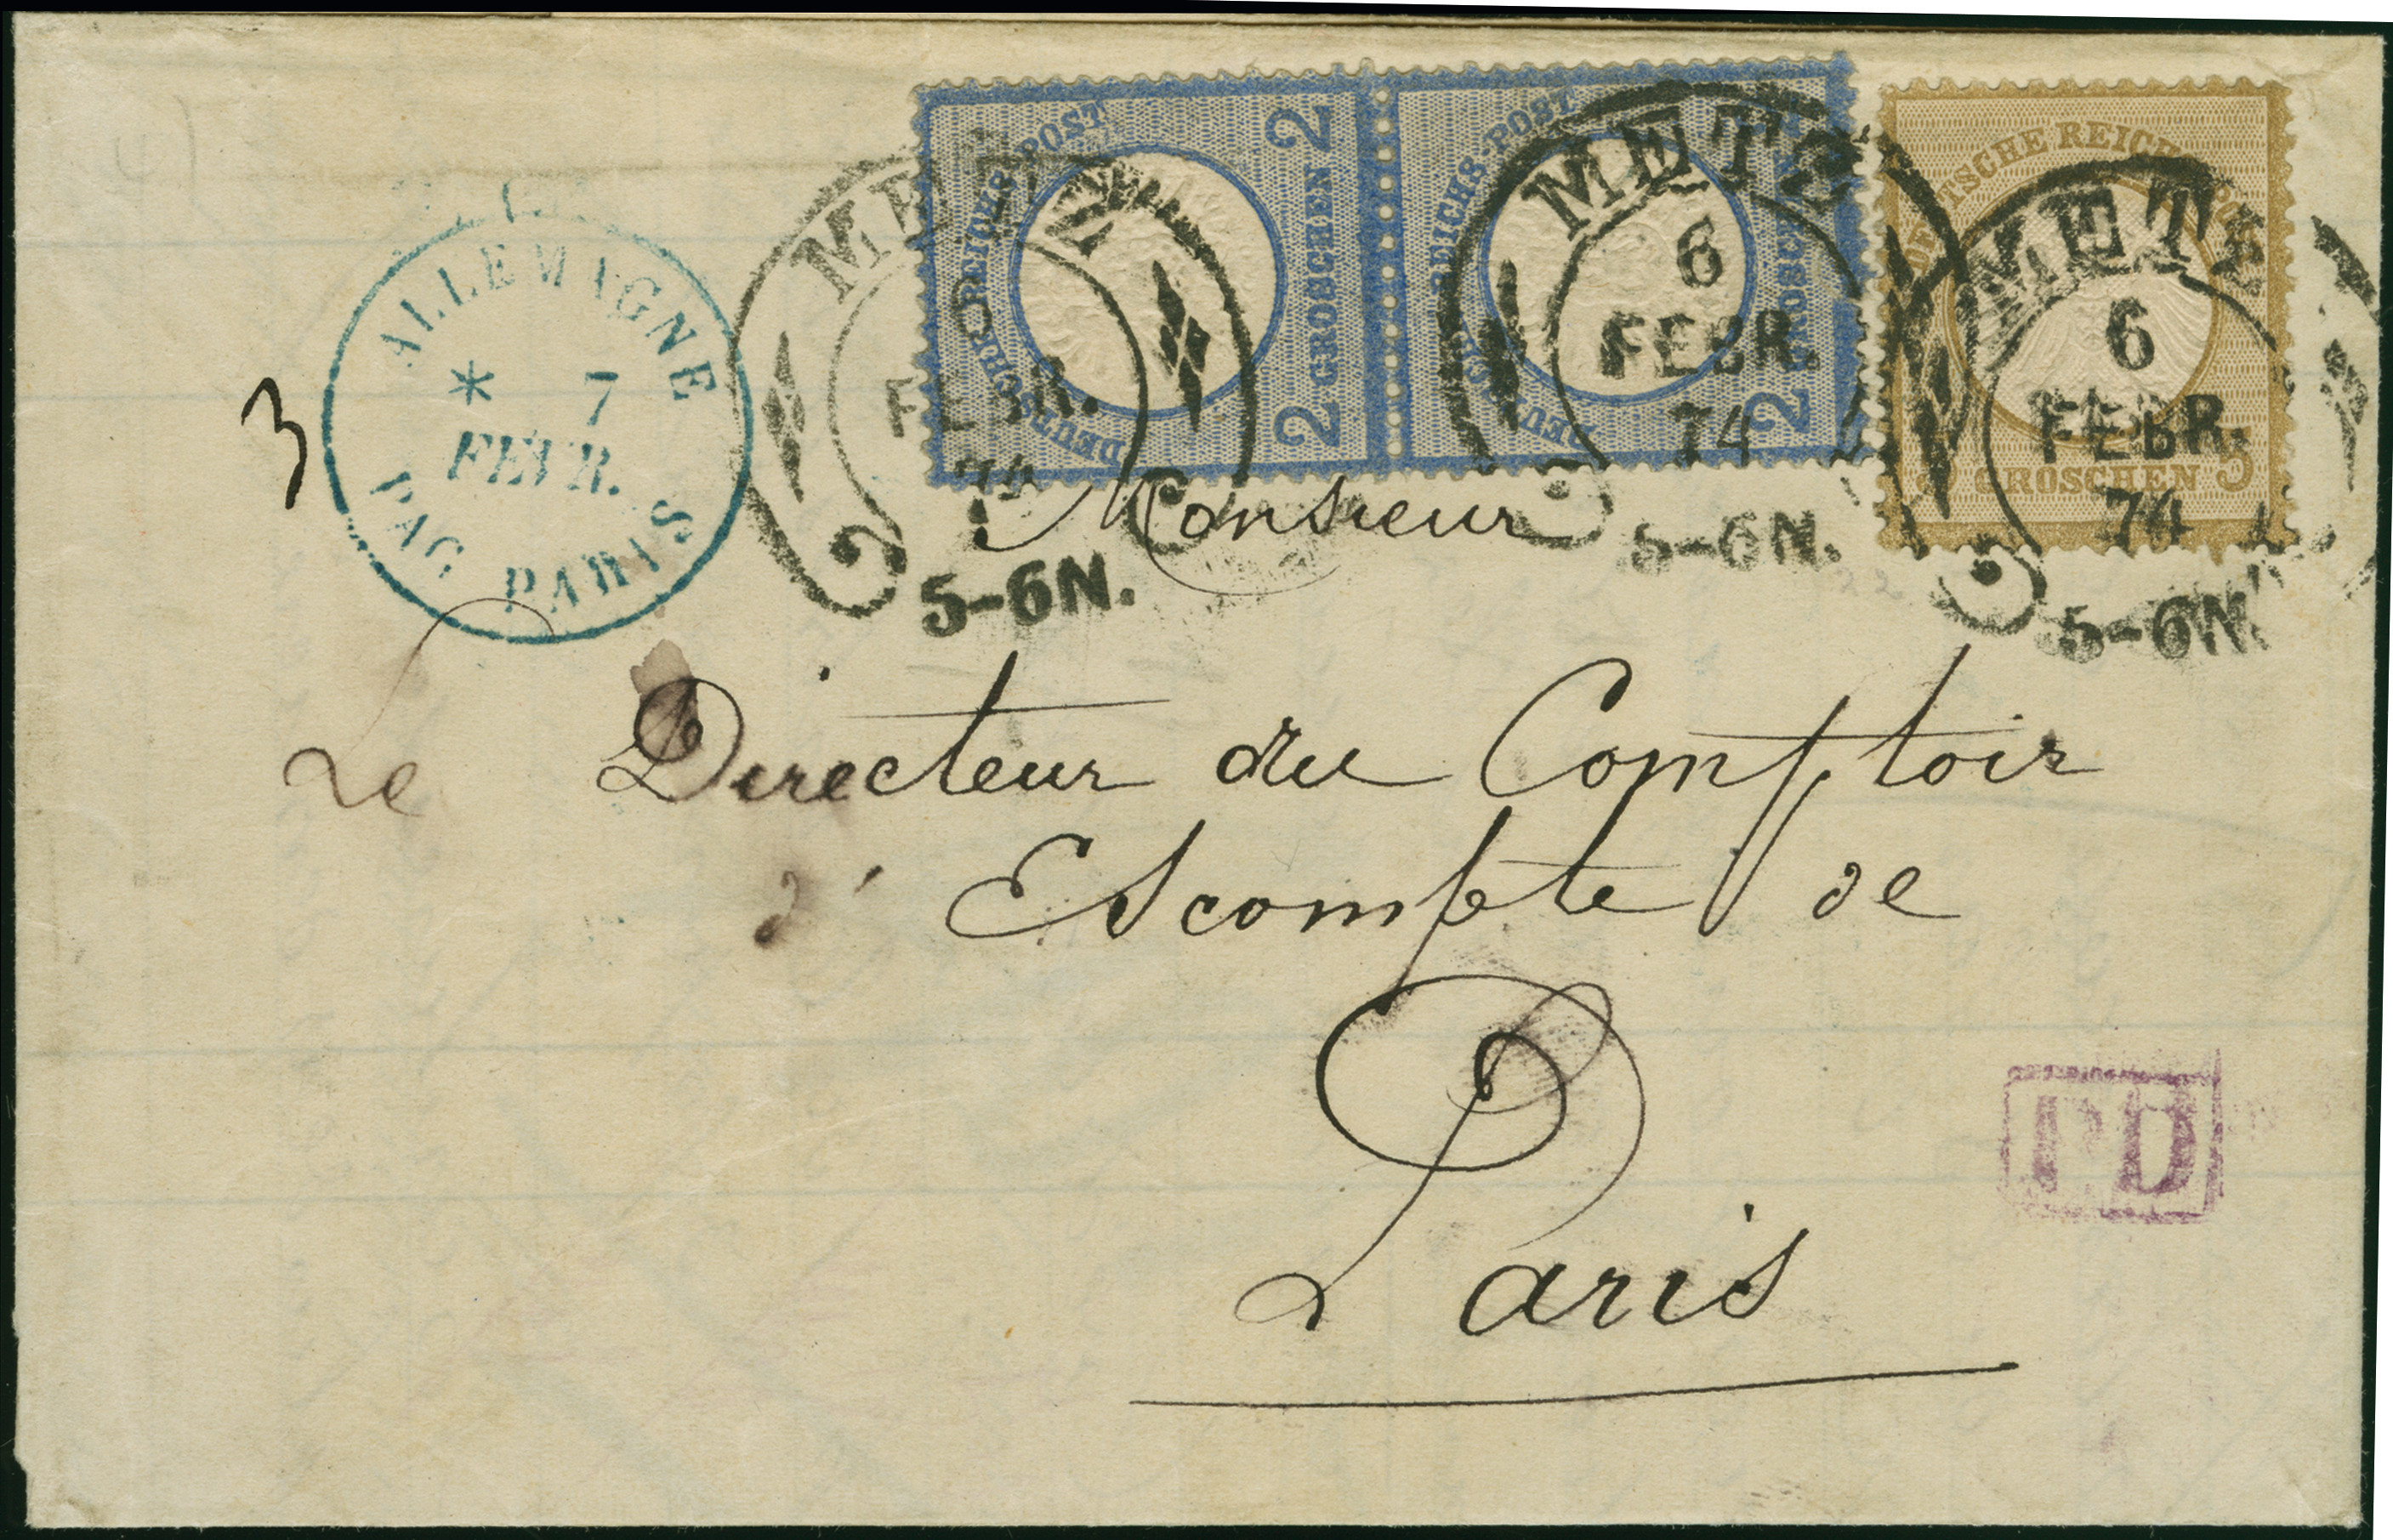 DEUTSCHE REICHS-POST
2 GROSCHEN 2
DEUTSCHE REICHS-POST
2 GROSCHEN
DEUTSCHE REICHS-POST
GROSCHEN 5
METZ
6
FEBR.
74
5-6N.
METZ
6
FEBR.
74
5-6N.
METZ
6
FEBR.
74
5-6N.
ALLEMAGNE
* 7
FEVR.
PAG PARIS
3
Monsieur
Le Directeur du Comptoir
d'Escompte de
Paris
PD